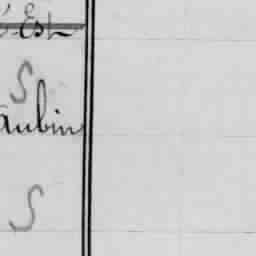 l'Est
S
aubin
S